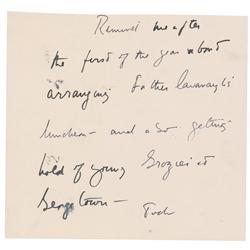 Remind me after
the first of the year about
arranging Father Cavanaugh's
luncheon - and also getting
hold of young at
Georgetown -